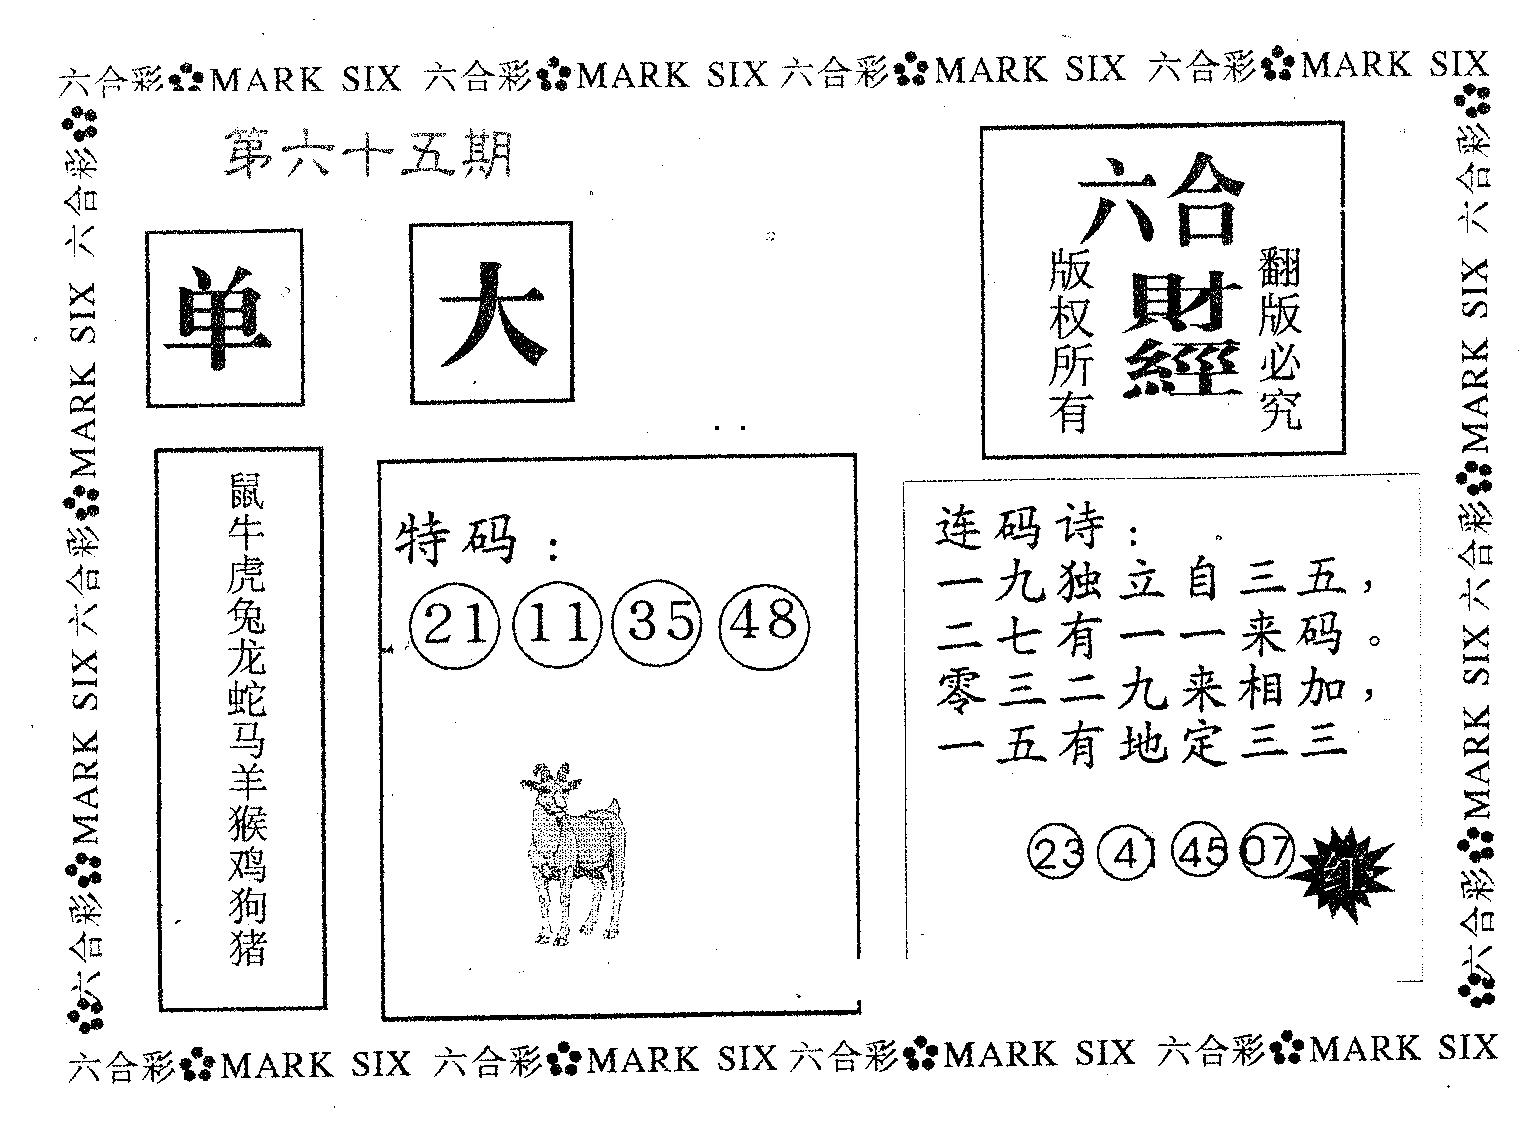 六合彩 MARK SIX 六合彩 MARK SIX 六合彩 MARK SIX 六合彩 MARK SIX
第六十五期
单
大
六合
財
經
版权所有
翻版必究
鼠牛虎兔龙蛇马羊猴鸡狗猪
特码：
21 11 35 48
连码诗：
一九独立自三五，
二七有一一来码。
零三二九来相加，
一五有地定三三
23 41 45 07 红
六合彩 MARK SIX 六合彩 MARK SIX 六合彩
六合彩 MARK SIX 六合彩 MARK SIX 六合彩
六合彩 MARK SIX 六合彩 MARK SIX 六合彩 MARK SIX 六合彩 MARK SIX